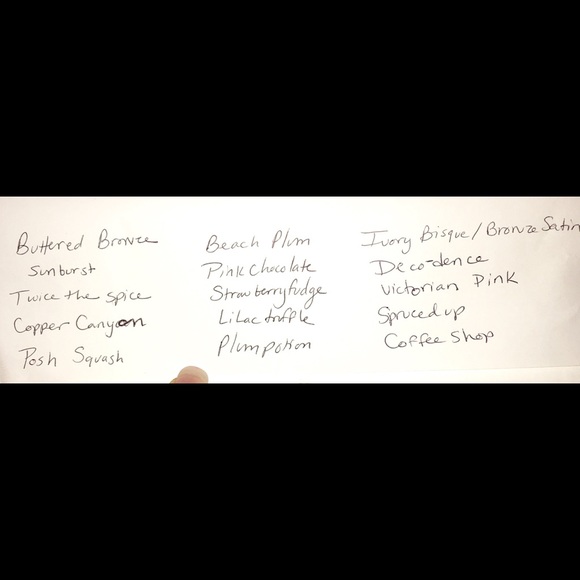 Buttered Bronze
Sunburst
Twice the spice
Copper Canyon
Posh Squash
Beach Plum
Pink Chocolate
Strawberry fudge
Lilac truffle
Plum potion
Ivory Bisque/Bronze Satin
Deco-dence
Victorian Pink
Spruced up
Coffee Shop